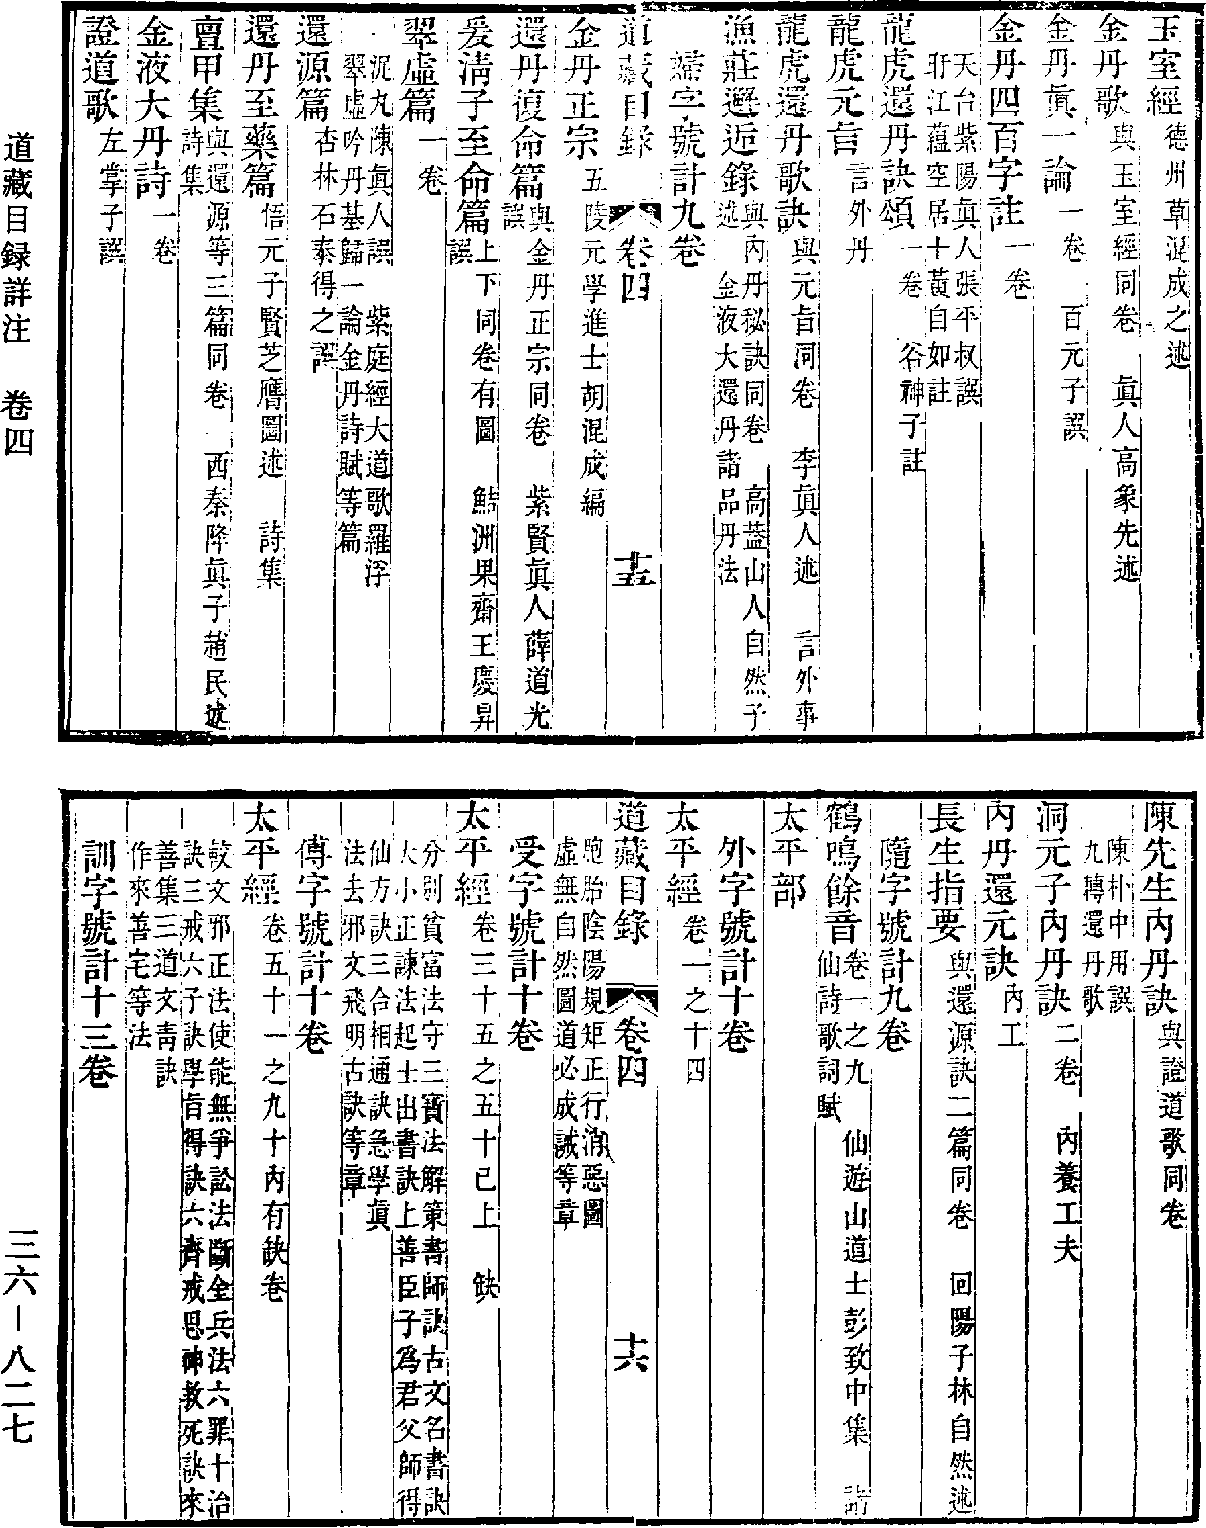 玉室經 德州草混成之述
金丹歌 與玉室經同卷 眞人高象先述
金丹眞一論 一卷 百元子譔
金丹四百字註 一卷
天台紫陽眞人張平叔譔
盱江蘊空居士黃自如註
龍虎還丹訣頌 一卷 谷神子註
龍虎元旨 言外丹
龍虎還丹歌訣 與元旨同卷 李眞人述 言外事
漁莊邂逅錄 與內丹秘訣同卷 高蓋山人自然子
述 金液大還丹諸品丹法
婦字號計九卷
道藏目錄 卷四 十五
金丹正宗 五陵元學進士胡混成編
還丹復命篇 與金丹正宗同卷 紫賢眞人薛道光
譔
爰清子至命篇 上下同卷有圖 鮚洲果齋王慶昇
譔
翠虛篇 一卷
泥丸陳眞人譔 紫庭經大道歌羅浮
翠虛吟丹基歸一論金丹詩賦等篇
還源篇 杏林石泰得之譔
還丹至藥篇 悟元子賢芝膺圖述 詩集
亶甲集 與還源等三篇同卷 西秦降眞子趙民述
詩集
金液大丹詩 一卷
證道歌 左掌子譔
陳先生內丹訣 與證道歌同卷
陳朴中用譔
九轉還丹歌
洞元子內丹訣 二卷 內養工夫
內丹還元訣 內工
長生指要 與還源訣二篇同卷 回陽子林自然述
隨字號計九卷
鶴鳴餘音 卷一之九 仙遊山道士彭致中集 諸
仙詩歌詞賦
太平部
外字號計十卷
太平經 卷一之十四
道藏目錄 卷四 十六
胞胎陰陽規矩正行消惡圖
虛無自然圖道必成誡等章
受字號計十卷
太平經 卷三十五之五十已上 缺
分別貧富法守三寶法解策書師訣古文名書訣
大小正諫法起士出書訣上善臣子爲君父師得
仙方訣三合相通訣急學眞
法去邪文飛明古訣等章
傅字號計十卷
太平經 卷五十一之九十內有缺卷
較文邪正法使能無爭訟法斷金兵法六罪十治
訣三戒六子訣學旨得訣六齊戒思神救死訣來
善集三道文靑訣
作來善宅等法
訓字號計十三卷
道藏目錄詳注 卷四
三六—八二七